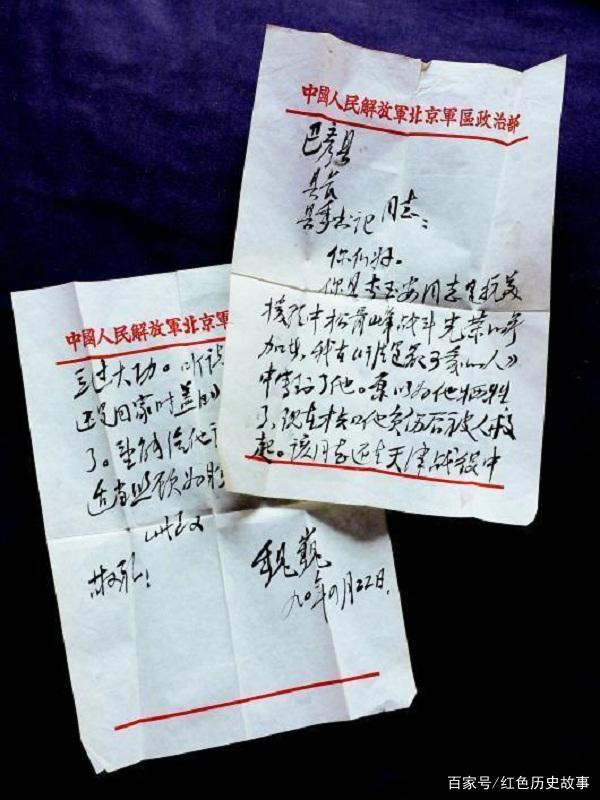 中國人民解放軍北京軍區政治部
巴彦县
县长
县委书记 同志：
你们好。
你县李玉安同志是抗美
援朝中松骨峰战斗光荣的参
加者，我在《谁是最可爱的人》
中写到了他。原以为他牺牲
了，现在才知他负伤后被人救
起。该同志还在天津战役中
中國人民解放軍北京軍
立过大功。听说
还是回家时盖的
了。望能给他
适当照顾为盼
此致
敬礼！
魏巍
九〇年四月22日.
百家号/红色历史故事